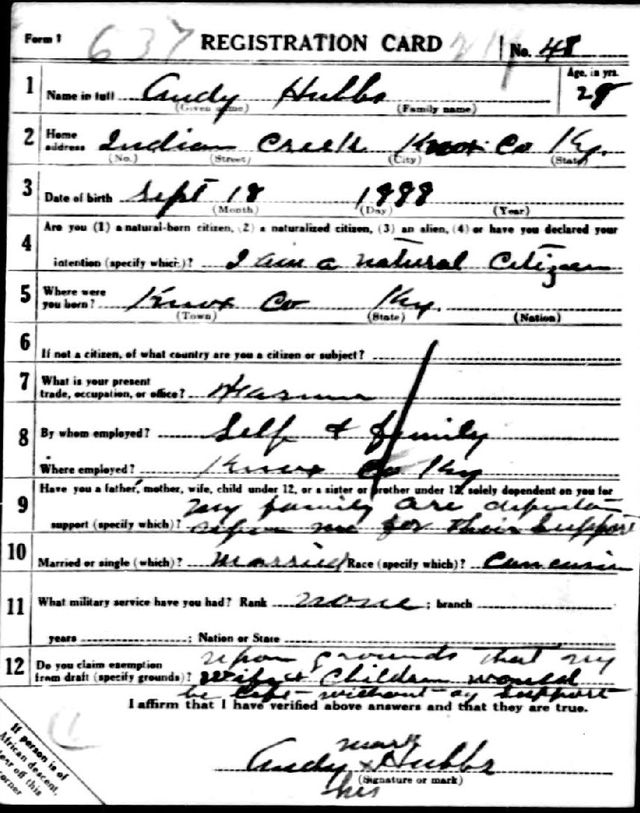 Form 1 637 REGISTRATION CARD No. 48
1 Name in full Andy Hubbs Age, in yrs. 28
(Given name) (Family name)
2 Home address Indian Creek Knox Co Ky.
(No.) (Street) (City) (State)
3 Date of birth Sept 18 1888
(Month) (Day) (Year)
4 Are you (1) a natural-born citizen, (2) a naturalized citizen, (3) an alien, (4) or have you declared your
intention (specify which)? I am a natural Citizen
5 Where were you born? Knox Co Ky.
(Town) (State) (Nation)
6 If not a citizen, of what country are you a citizen or subject?
7 What is your present trade, occupation, or office?
8 By whom employed? Self & family
Where employed? Knox Co Ky
9 Have you a father, mother, wife, child under 12, or a sister or brother under 12, solely dependent on you for
support (specify which)? My family are upon me for their support
10 Married or single (which)? Married Race (specify which)?
11 What military service have you had? Rank none ; branch
years ; Nation or State
12 Do you claim exemption from draft (specify grounds)? upon grounds that my
wife & Children would
be left without my support
I affirm that I have verified above answers and that they are true.
mark
Andy x Hubbs
(Signature or mark)
his
If person is of
African descent,
tear off this
corner